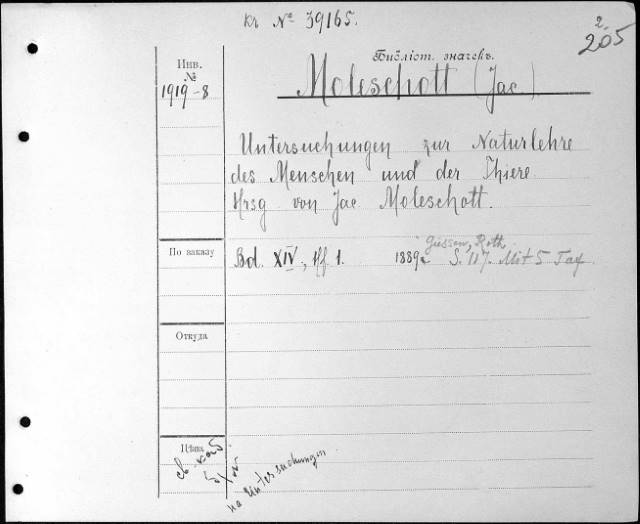 Kr № 39165.
2.
205
Библіот. значекъ.
Инв. №
1919-8
Moleschott (Jac.)
Untersuchungen zur Naturlehre
des Menschen und der Thiere.
Hrsg von Jac. Moleschott.
По заказу
Bd. XIV, Hf 1. 1889. Giessen, Roth. S. 117. Mit 5 Taf
Откуда
Цѣна
на Untersuchungen